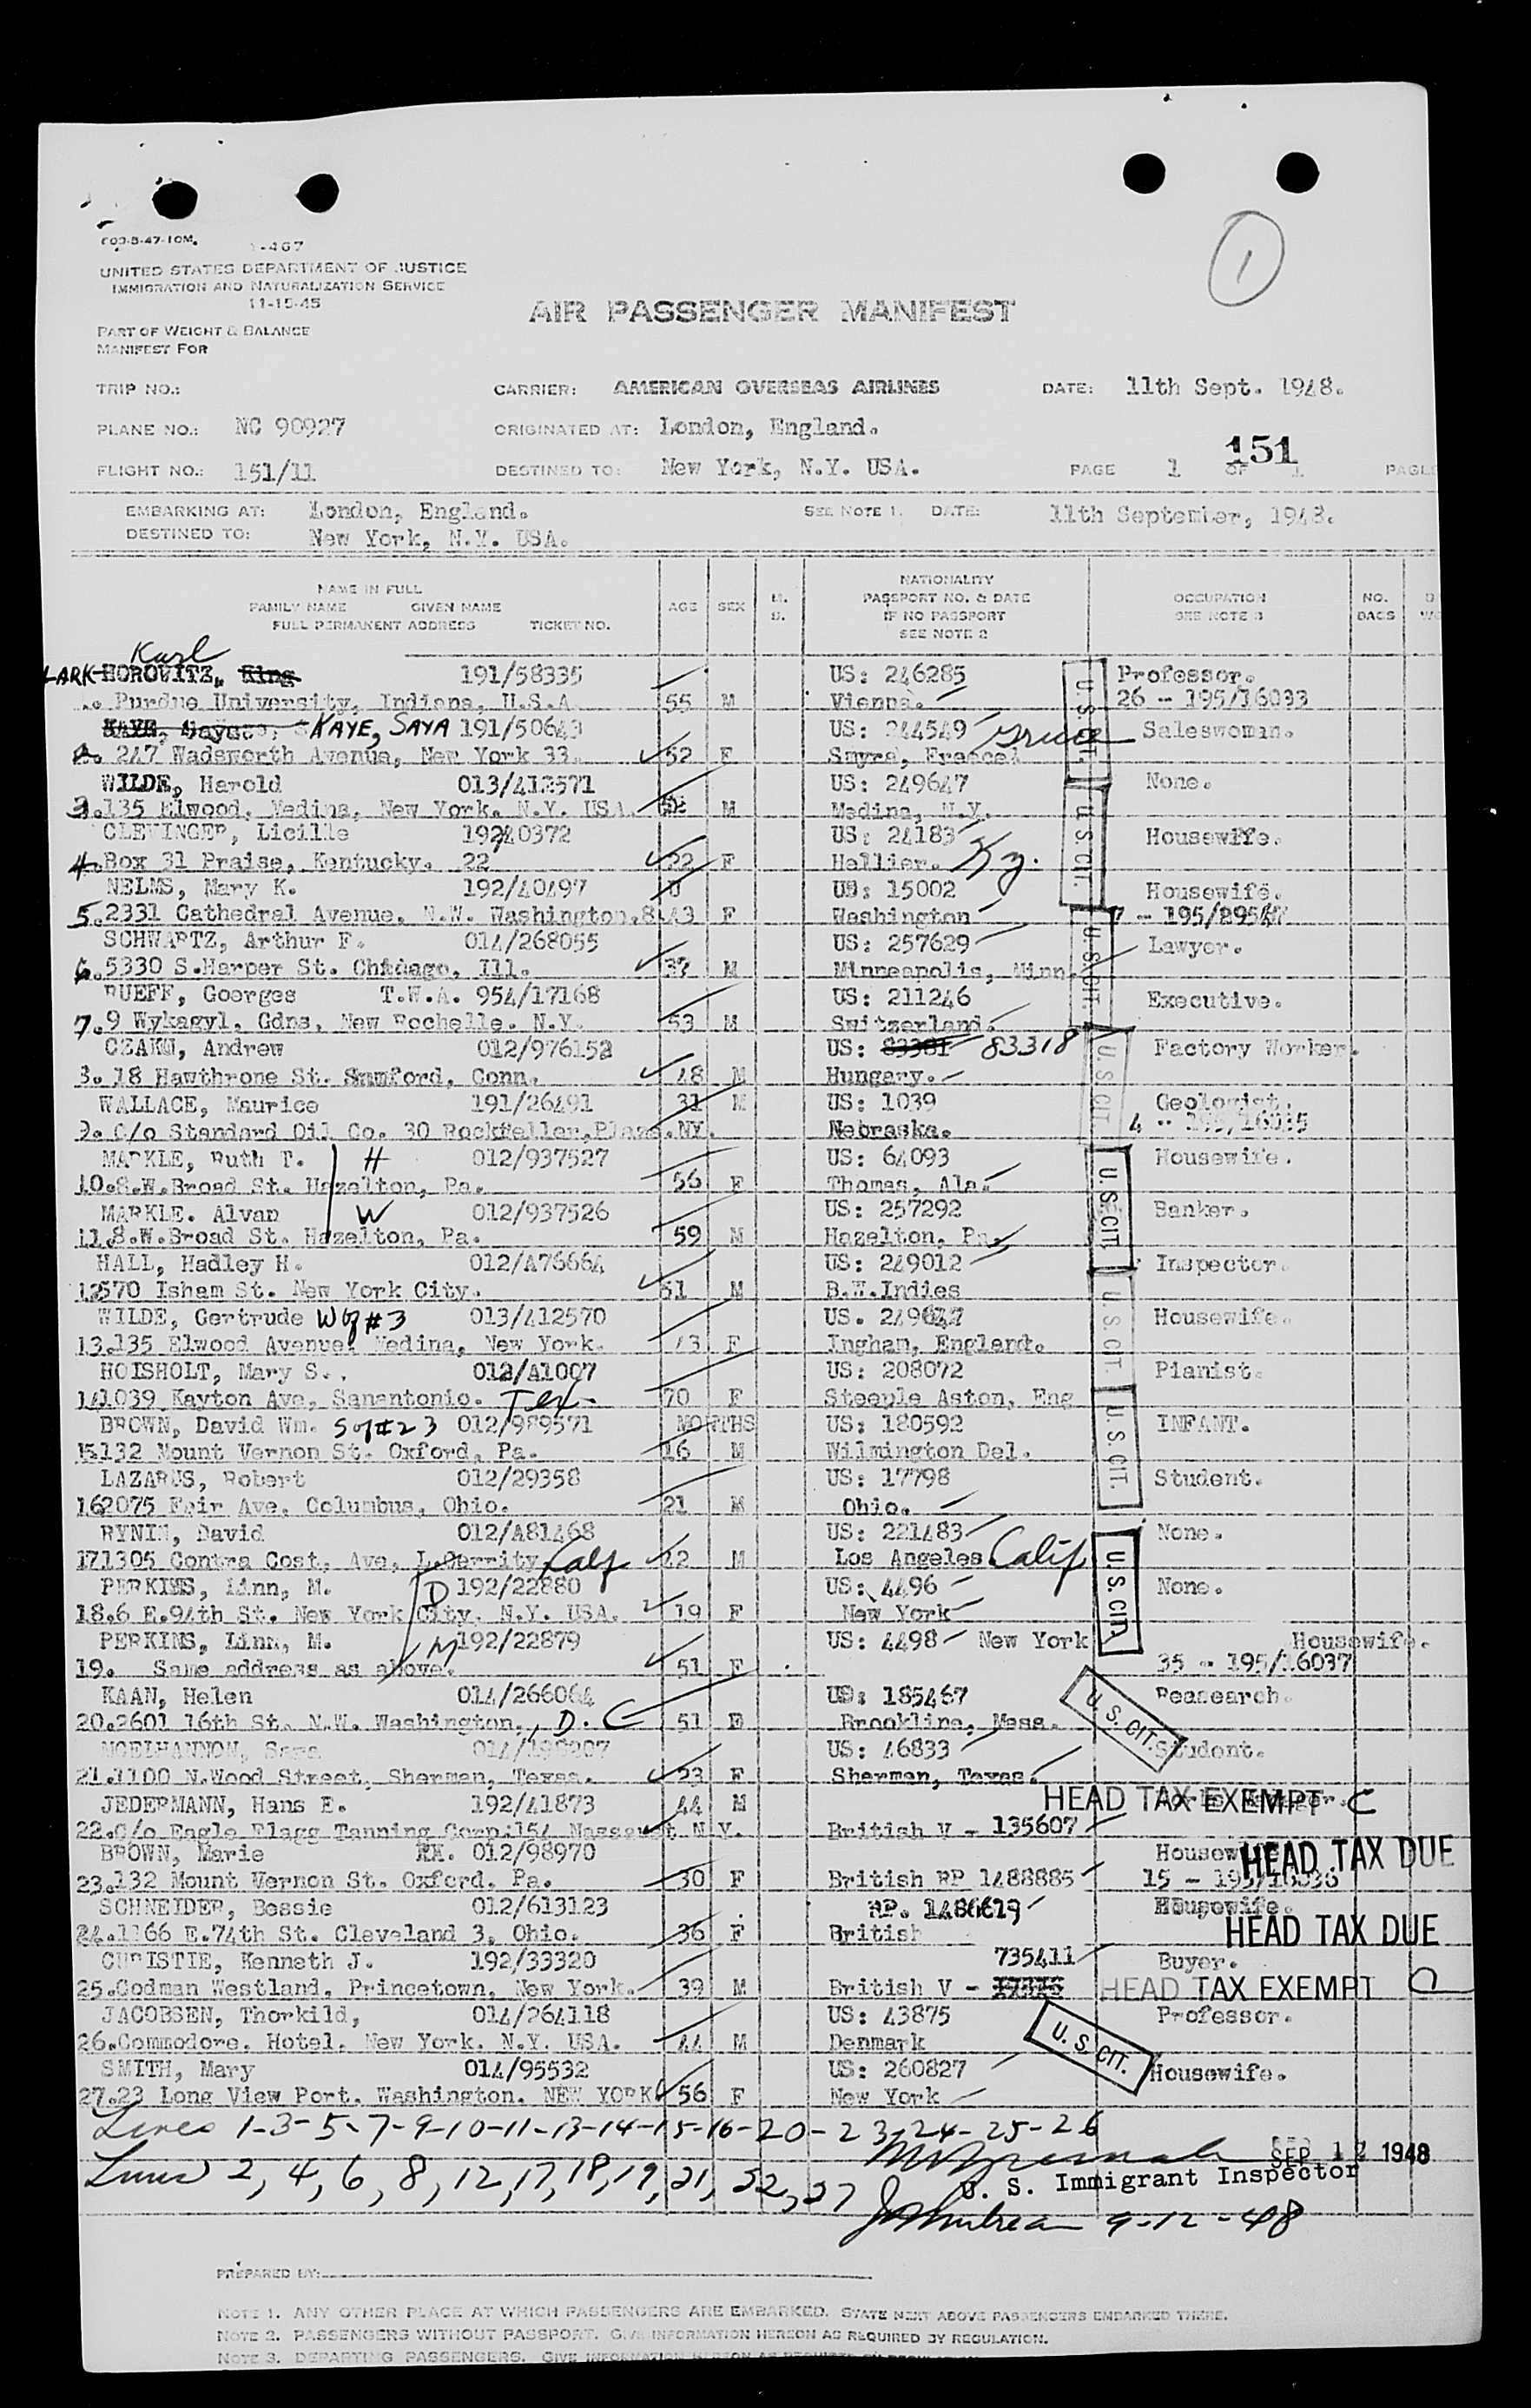 609-5-47-10M. I-467
UNITED STATES DEPARTMENT OF JUSTICE
IMMIGRATION AND NATURALIZATION SERVICE
11-15-45
1
AIR PASSENGER MANIFEST
PART OF WEIGHT & BALANCE
MANIFEST FOR
TRIP NO.: CARRIER: AMERICAN OVERSEAS AIRLINES DATE: 11th Sept. 1948.
PLANE NO.: NC 90927 ORIGINATED AT: London, England.
151
FLIGHT NO.: 151/11 DESTINED TO: New York, N.Y. USA. PAGE 1 OF 1 PAGE
EMBARKING AT: London, England. SEE NOTE 1. DATE: 11th September, 1948.
DESTINED TO: New York, N.Y. USA.
NAME IN FULL
FAMILY NAME GIVEN NAME
FULL PERMANENT ADDRESS TICKET NO.
AGE SEX M. S.
NATIONALITY
PASSPORT NO. & DATE
IF NO PASSPORT
SEE NOTE 2
OCCUPATION
SEE NOTE 3
NO. BAGS
Karl
LARK-HOROWITZ, King 191/58335 US: 246285 Professor.
Purdue University, Indiana, U.S.A 55 M Vienna. 26 - 195/16033
KAYE, SAYA 191/50643 US: 244549 Saleswoman.
2. 247 Wadsworth Avenue, New York 33. 52 F Smyra, Greece
WILDE, Harold 013/412571 US: 249647 None.
3. 135 Elwood, Medina, New York. N.Y. USA. M Medina, N.Y.
CLEVINGER, Licille 192/40372 US: 24183 Housewife.
4. Box 31 Praise, Kentucky. 22 22 F Hellier. Ky.
NELMS, Mary K. 192/40497 US: 15002 Housewife.
5. 2331 Cathedral Avenue, N.W. Washington.8. 43 F Washington 7 - 195/
SCHWARTZ, Arthur F. 014/268055 US: 257629 Lawyer.
6. 5330 S.Harper St. Chidago, Ill. 37 M Minneapolis, Minn
RUEFF, Goerges T.W.A. 954/17168 US: 211246 Executive.
7. 9 Wykagyl. Gdns, New Rochelle. N.Y. 53 M Switzerland.
CZAKU, Andrew 012/976152 US: 83381 83318 Factory Worker.
8. 18 Hawthrone St. Samford, Conn. 48 M Hungary.
WALLACE, Maurice 191/26491 31 M US: 1039 Geologist.
9. C/o Standard Oil Co. 30 Rockfeller,Plaza.NY. Nebraska. 4 - 195/16035
MARKLE, Ruth T. H 012/937527 US: 64093 Housewife.
10.8.W.Broad St. Hazelton, Pa. 56 F Thomas, Ala.
MARKLE. Alvan W 012/937526 US: 257292 Banker.
11.8.W.Broad St. Hazelton, Pa. 59 M Hazelton, Pa.
HALL, Hadley H. 012/A76664 US: 249012 Inspector.
12570 Isham St. New York City. 51 M B.W.Indies
WILDE, Gertrude W of #3 013/412570 US. 249647 Housewife.
13.135 Elwood Avenue, Medina, New York. 43 F Inghan, England.
HOISHOLT, Mary S.. 012/A1007 US: 208072 Pianist.
141039 Kayton Ave, Sanantonio. Tex. 70 F Steeple Aston, Eng
BROWN, David Wm. S of #23 012/989571 MONTHS US: 180592 INFANT.
15.132 Mount Vernon St. Oxford, Pa. 16 M Wilmington Del.
LAZARUS, Robert 012/29358 US: 17798 Student.
162075 Fair Ave, Columbus, Ohio. 21 M Ohio.
RYNIN, David 012/A81468 US: 221483 None.
171305 Contra Cost, Ave, L.Cerrity, Calf 42 M Los Angeles Calif
PERKINS, Linn, M. D 192/22880 US: 4496 None.
18.6 E.94th St. New York City. N.Y. USA. 19 F New York
PERKINS, Linn, M. M 192/22879 US: 4498 New York Housewife.
19. Same address as above. 51 F 35 - 195/16037
KAAN, Helen 014/266064 US: 185467 Reasearch.
20.2601 16th St. N.W. Washington., D.C 51 F Brookline, Mass.
MCELHANNON, Sara 014/198207 US: 46833 Student.
21.1100 N.Wood Street, Sherman, Texas. 23 F Sherman, Texas.
JEDERMANN, Hans E. 192/41873 44 M HEAD TAX EXEMPT C
22.C/o Eagle Flagg Tanning Corp:154 N.Y. British V - 135607
BROWN, Marie EX. 012/98970 HEAD TAX DUE
23.132 Mount Vernon St. Oxford, Pa. 30 F British RP 1488885 15 - 195/16036
SCHNEIDER, Bessie 012/613123 RP. 1486619 Housewife.
24.1166 E.74th St. Cleveland 3, Ohio. 36 F British HEAD TAX DUE
CHRISTIE, Kenneth J. 192/33320 735411 Buyer.
25.Godman Westland, Princetown, New York. 39 M British V - HEAD TAX EXEMPT C
JACOBSEN, Thorkild, 014/264118 US: 43875 Professor.
26.Commodore. Hotel. New York. N.Y. USA. 44 M Denmark
SMITH, Mary 014/95532 US: 260827 Housewife.
27.23 Long View Port. Washington. NEW YORK 56 F New York
U. S. CIT.
U. S. CIT.
U. S. CIT.
U. S. CIT.
U. S. CIT.
U. S. CIT.
U. S. CIT.
U. S. CIT.
U. S. CIT.
U. S. CIT.
Lines 1-3-5-7-9-10-11-13-14-15-16-20-23,24-25-26
SEP 12 1948
Lines 2, 4, 6, 8, 12, 17, 18, 19, 21, 22, 27
U. S. Immigrant Inspector
9-12-48
PREPARED BY:
NOTE 1. ANY OTHER PLACE AT WHICH PASSENGERS ARE EMBARKED. STATE NEXT ABOVE PASSENGERS EMBARKED THERE.
NOTE 2. PASSENGERS WITHOUT PASSPORT. GIVE INFORMATION HEREON AS REQUIRED BY REGULATION.
NOTE 3. DEPARTING PASSENGERS. GIVE INFORMATION HEREON AS